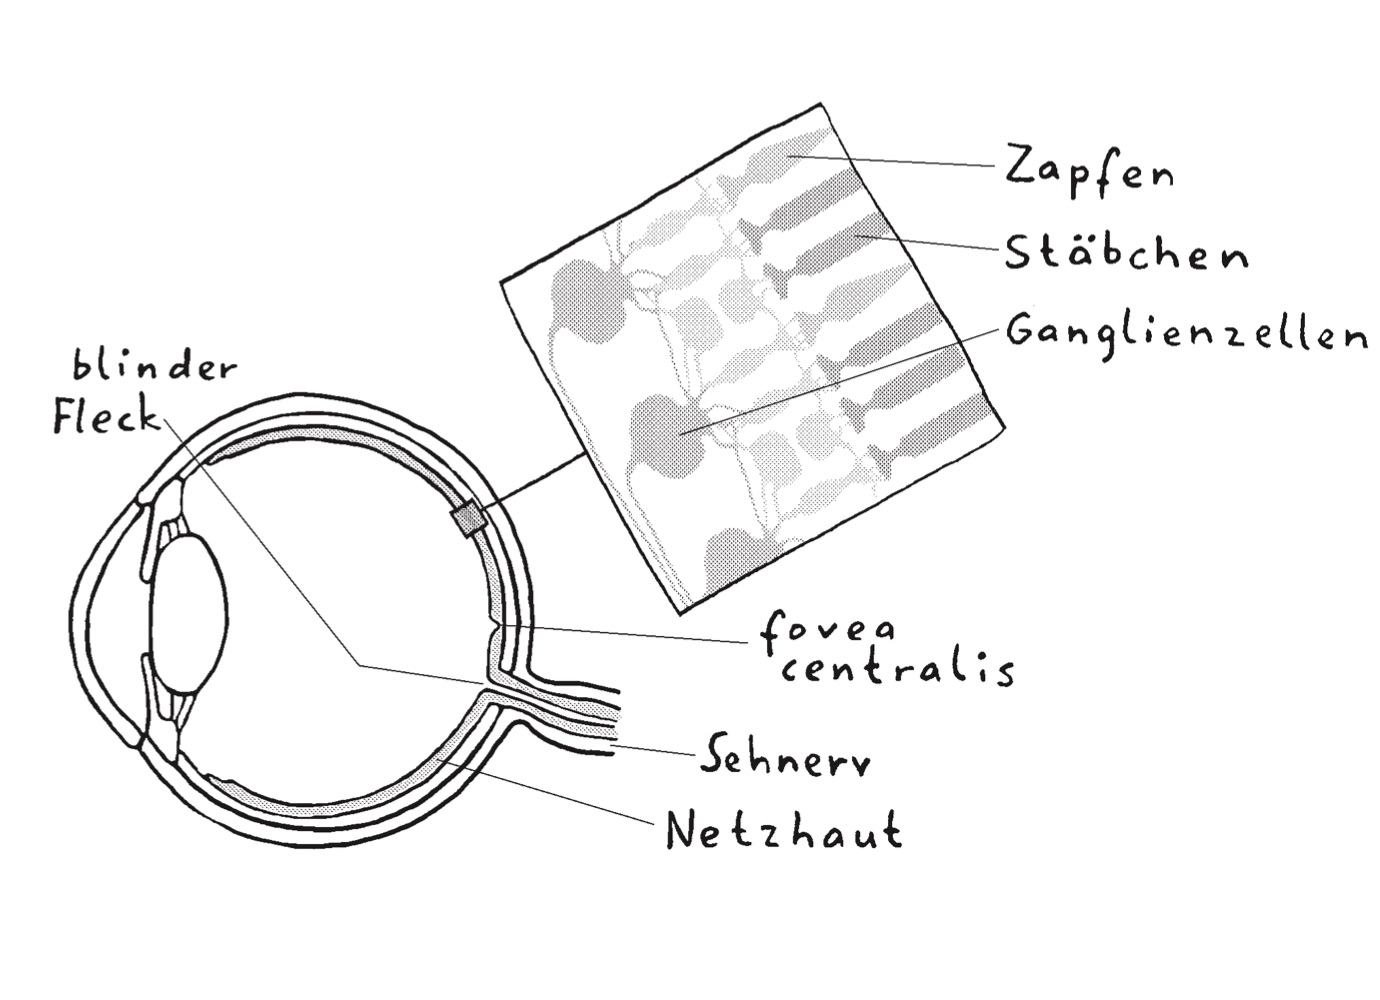 Zapfen
Stäbchen
Ganglienzellen
blinder
Fleck
fovea
centralis
Sehnerv
Netzhaut